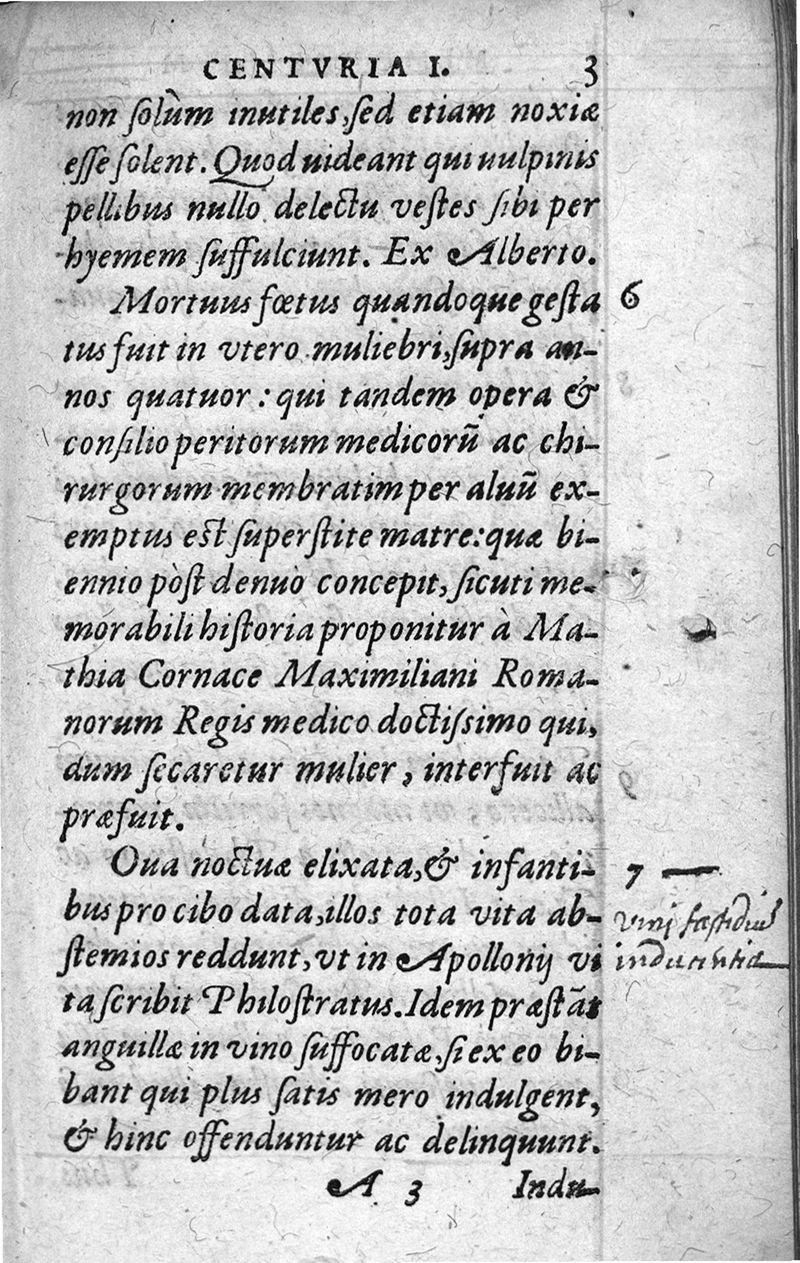 CENTVRIA I. 3
non ſolùm inutiles, ſed etiam noxiæ
eſſe ſolent. Quod uideant qui uulpinis
pellibus nullo delectu veſtes ſibi per
hyemem ſuffulciunt. Ex Alberto.
Mortuus fœtus quandoque geſta 6
tus fuit in vtero muliebri, ſupra an-
nos quatuor: qui tandem opera &
conſilio peritorum medicorũ ac chi-
rurgorum membratim per aluũ ex-
emptus eſt ſuperſtite matre: quæ bi-
ennio pòſt denuò concepit, ſicuti me-
morabili hiſtoria proponitur à Ma-
thia Cornace Maximiliani Roma-
norum Regis medico doctiſsimo qui,
dum ſecaretur mulier, interfuit ac
præfuit.
Oua noctuæ elixata, & infanti- 7
bus pro cibo data, illos tota vita ab-
ſtemios reddunt, vt in Apollonij vi
ta ſcribit Philoſtratus. Idem præſtãt
anguillæ in vino ſuffocatæ, ſi ex eo bi-
bant qui plus ſatis mero indulgent,
& hinc offenduntur ac delinquunt.
A 3 Indu-
vini faſtidiũ
inducentia